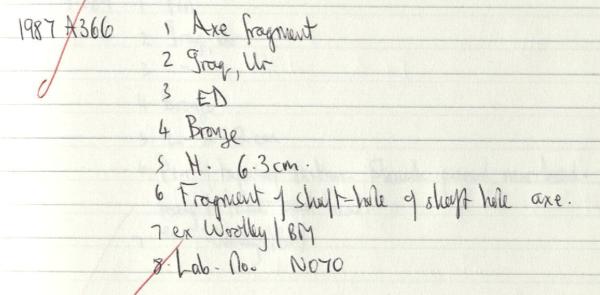 1987 A366 1 Axe fragment
2 Iraq, Ur
3 ED
4 Bronze
5 H. 6.3cm.
6 Fragment of shaft-hole of shaft hole axe.
7 ex Woolley / BM
8. Lab. No. N070